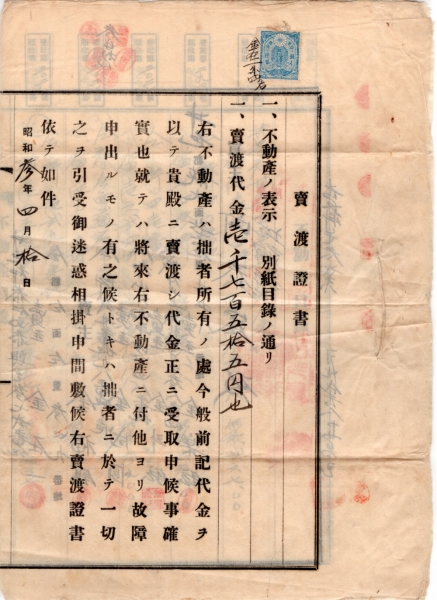 賣渡證書
一、不動産ノ表示 別紙目錄ノ通リ
一、賣渡代金壱千七百五拾五円也
右不動產ハ拙者所有ノ處今般前記代金ヲ
以テ貴殿ニ賣渡シ代金正ニ受取申候事確
實也就テハ將來右不動產ニ付他ヨリ故障
申出ルモノ有之候トキハ拙者ニ於テ一切
之ヲ引受御迷惑相掛申間敷候右賣渡證書
依テ如件
昭和參年四月拾日